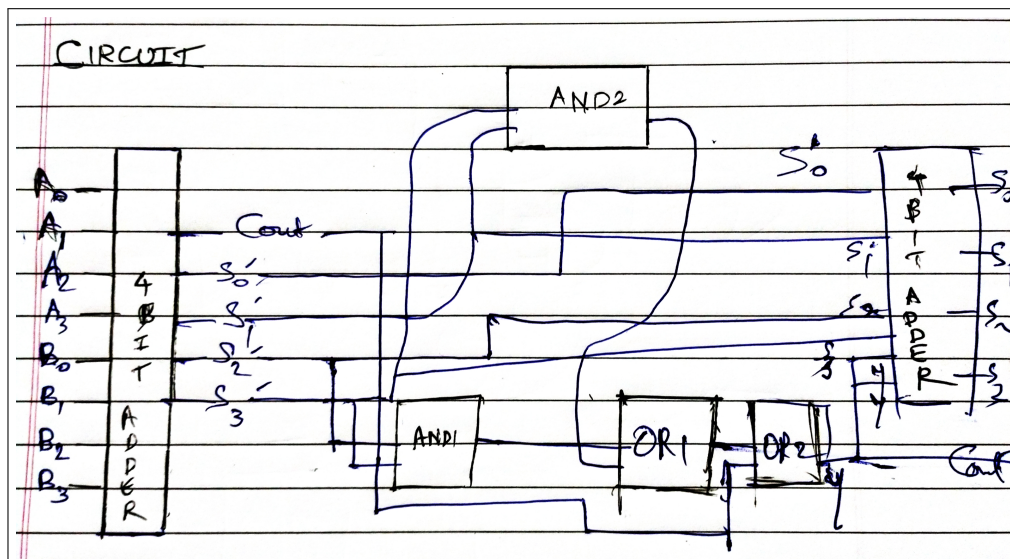 CIRCUIT
AND2
S₀'
A₀
A₁
A₂
A₃
B₀
B₁
B₂
B₃
4 BIT ADDER
Cout
S₀'
S₁'
S₂'
S₃'
AND1
OR1
OR2
y
S₁'
S₂
S₃
y
y
4 BIT ADDER
S₀
S₁
S₂
S₃
Cout